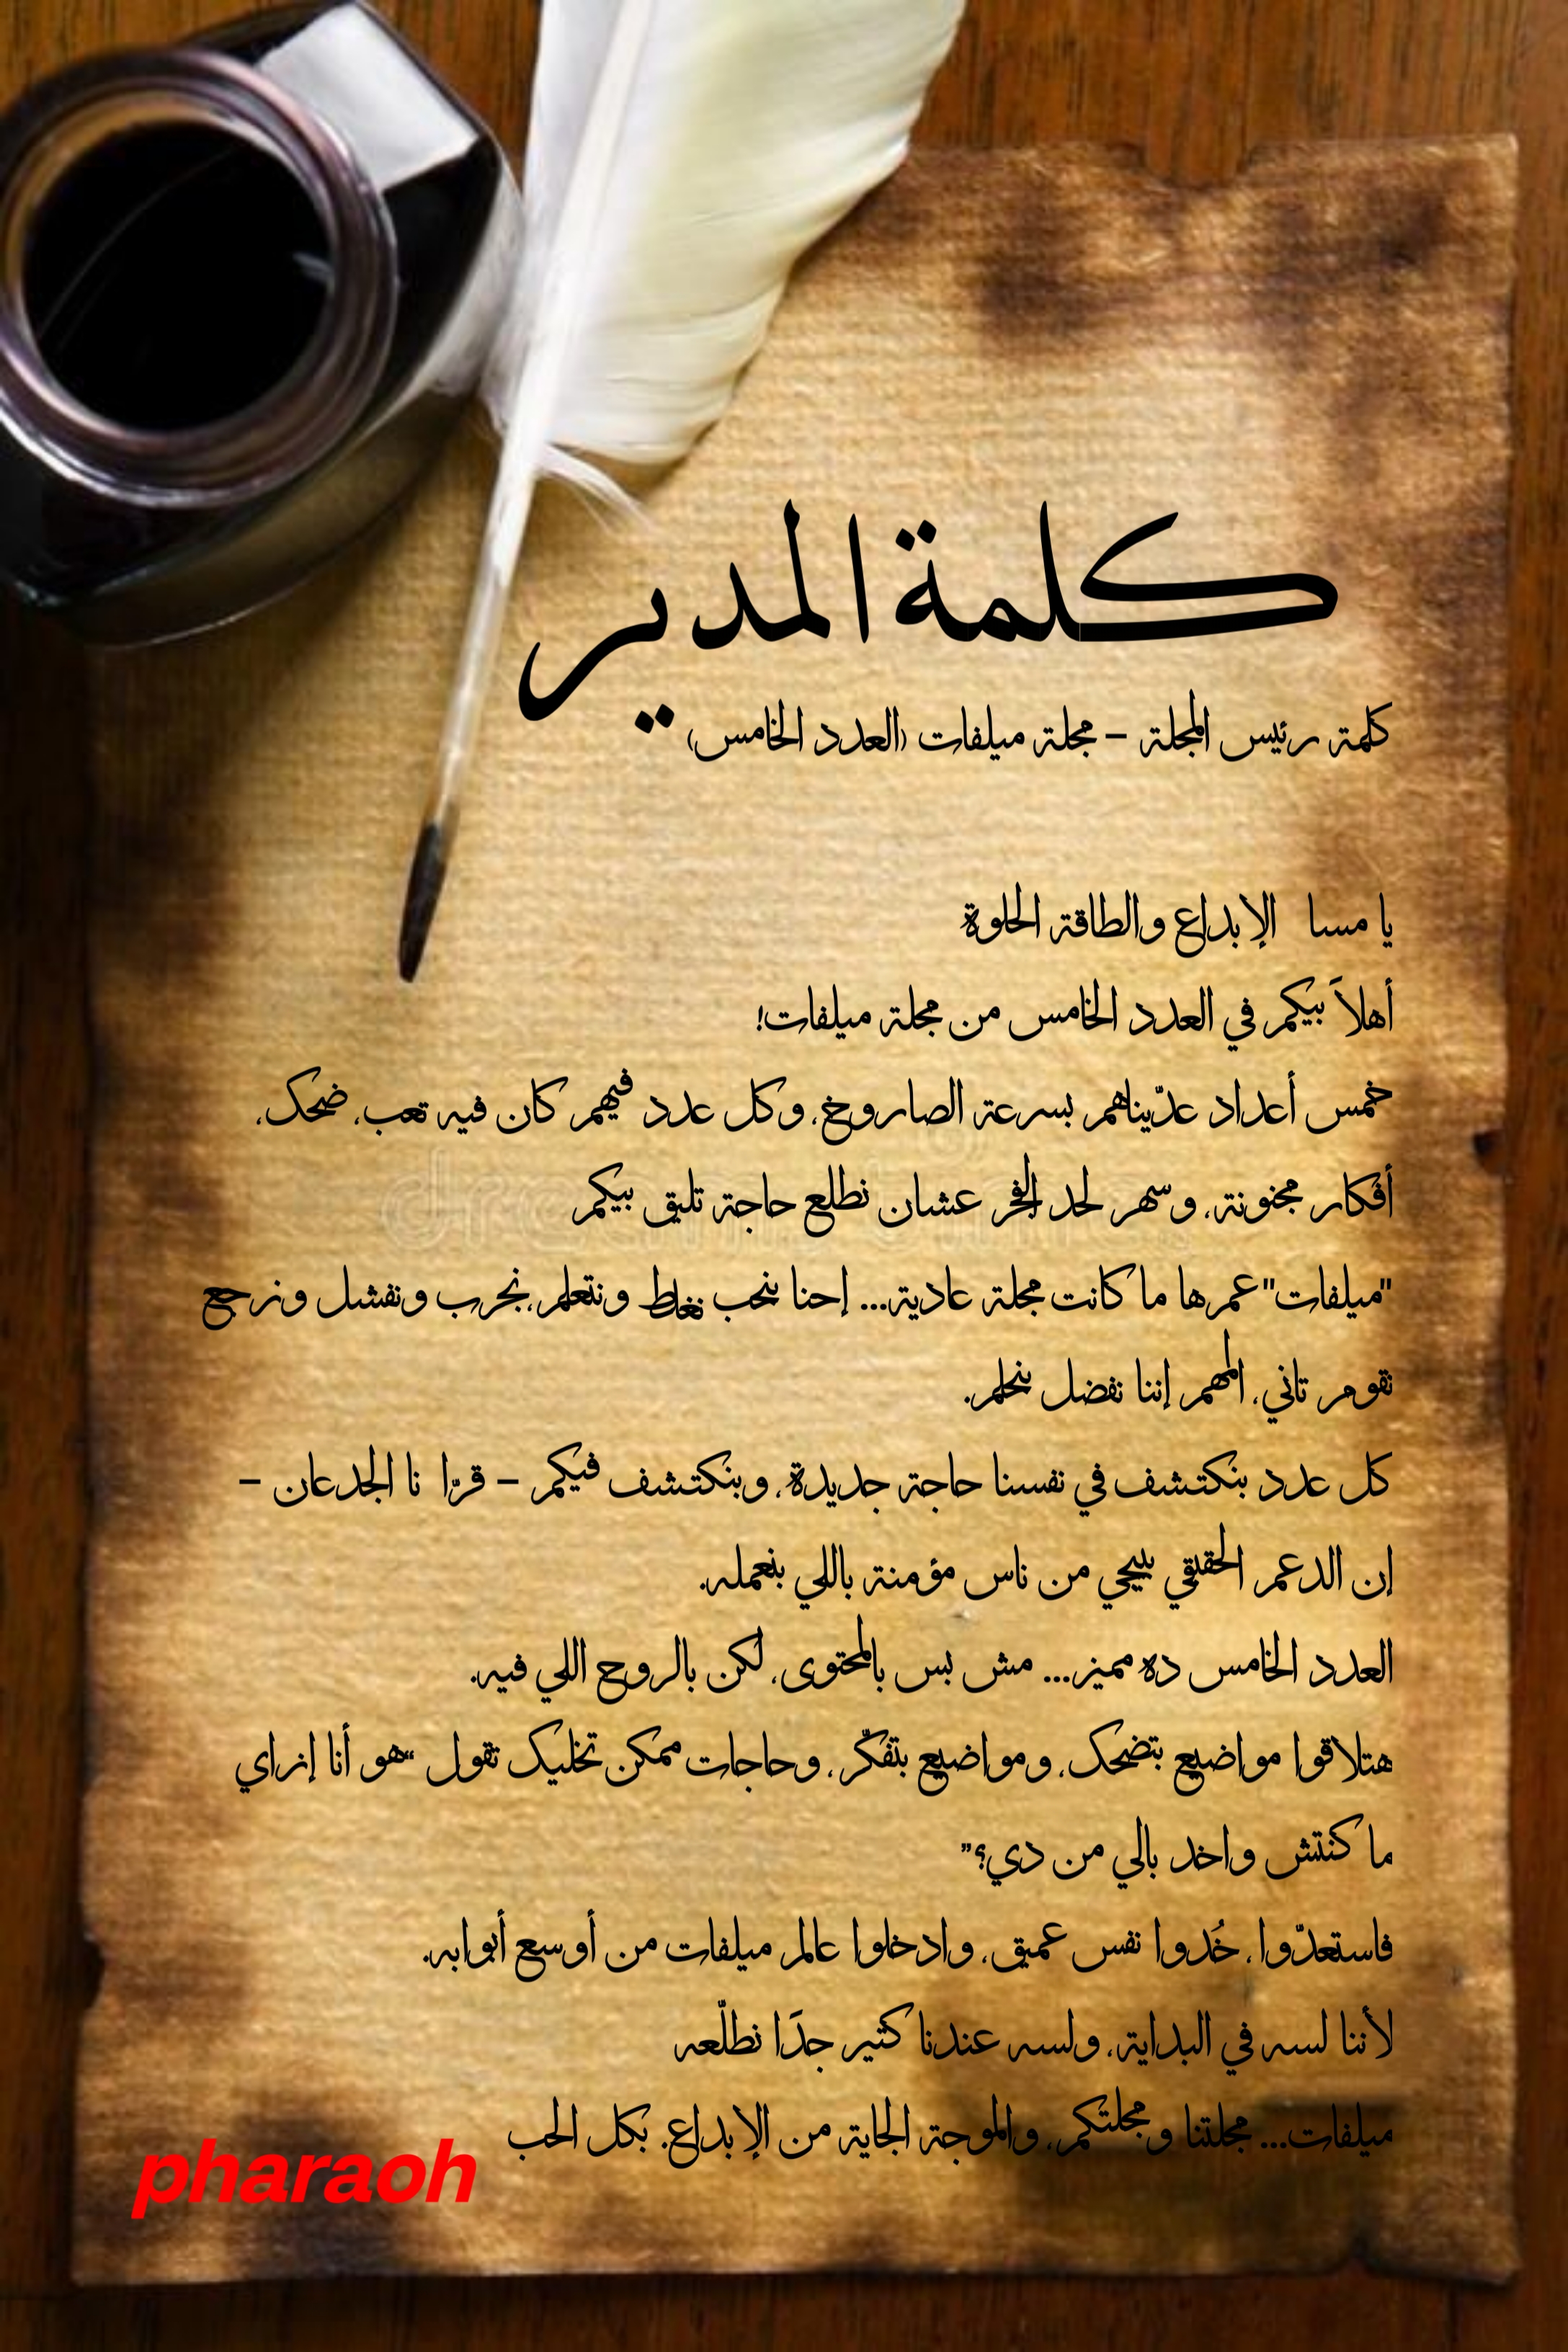 كلمة المدير
كلمة رئيس المجلة – مجلة ميلفات (العدد الخامس)
يا مسا الإبداع والطاقة الحلوة
أهلاً بيكم في العدد الخامس من مجلة ميلفات!
خمس أعداد عدّيناهم بسرعة الصاروخ، وكل عدد فيهم كان فيه تعب، ضحك،
أفكار مجنونة، وسهر لحد الفجر عشان نطلع حاجة تليق بيكم
"ميلفات" عمرها ما كانت مجلة عادية... إحنا بنحب نغلط ونتعلم، نجرب ونفشل ونرجع
نقوم تاني، المهم إننا نفضل بنحلم.
كل عدد بنكتشف في نفسنا حاجة جديدة، وبنكتشف فيكم – قرّا نا الجدعان –
إن الدعم الحقيقي بييجي من ناس مؤمنة باللي بنعمله.
العدد الخامس ده مميز... مش بس بالمحتوى، لكن بالروح اللي فيه.
هتلاقوا مواضيع بتضحك، ومواضيع بتفكّر، وحاجات ممكن تخليك تقول “هو أنا إزاي
ما كنتش واخد بالي من دي؟”
فاستعدّوا، خُدوا نفس عميق، وادخلوا عالم ميلفات من أوسع أبوابه.
لأننا لسه في البداية، ولسه عندنا كتير جدًا نطلّعه
ميلفات... مجلتنا ومجلتكم، والموجة الجاية من الإبداع. بكل الحب
pharaoh